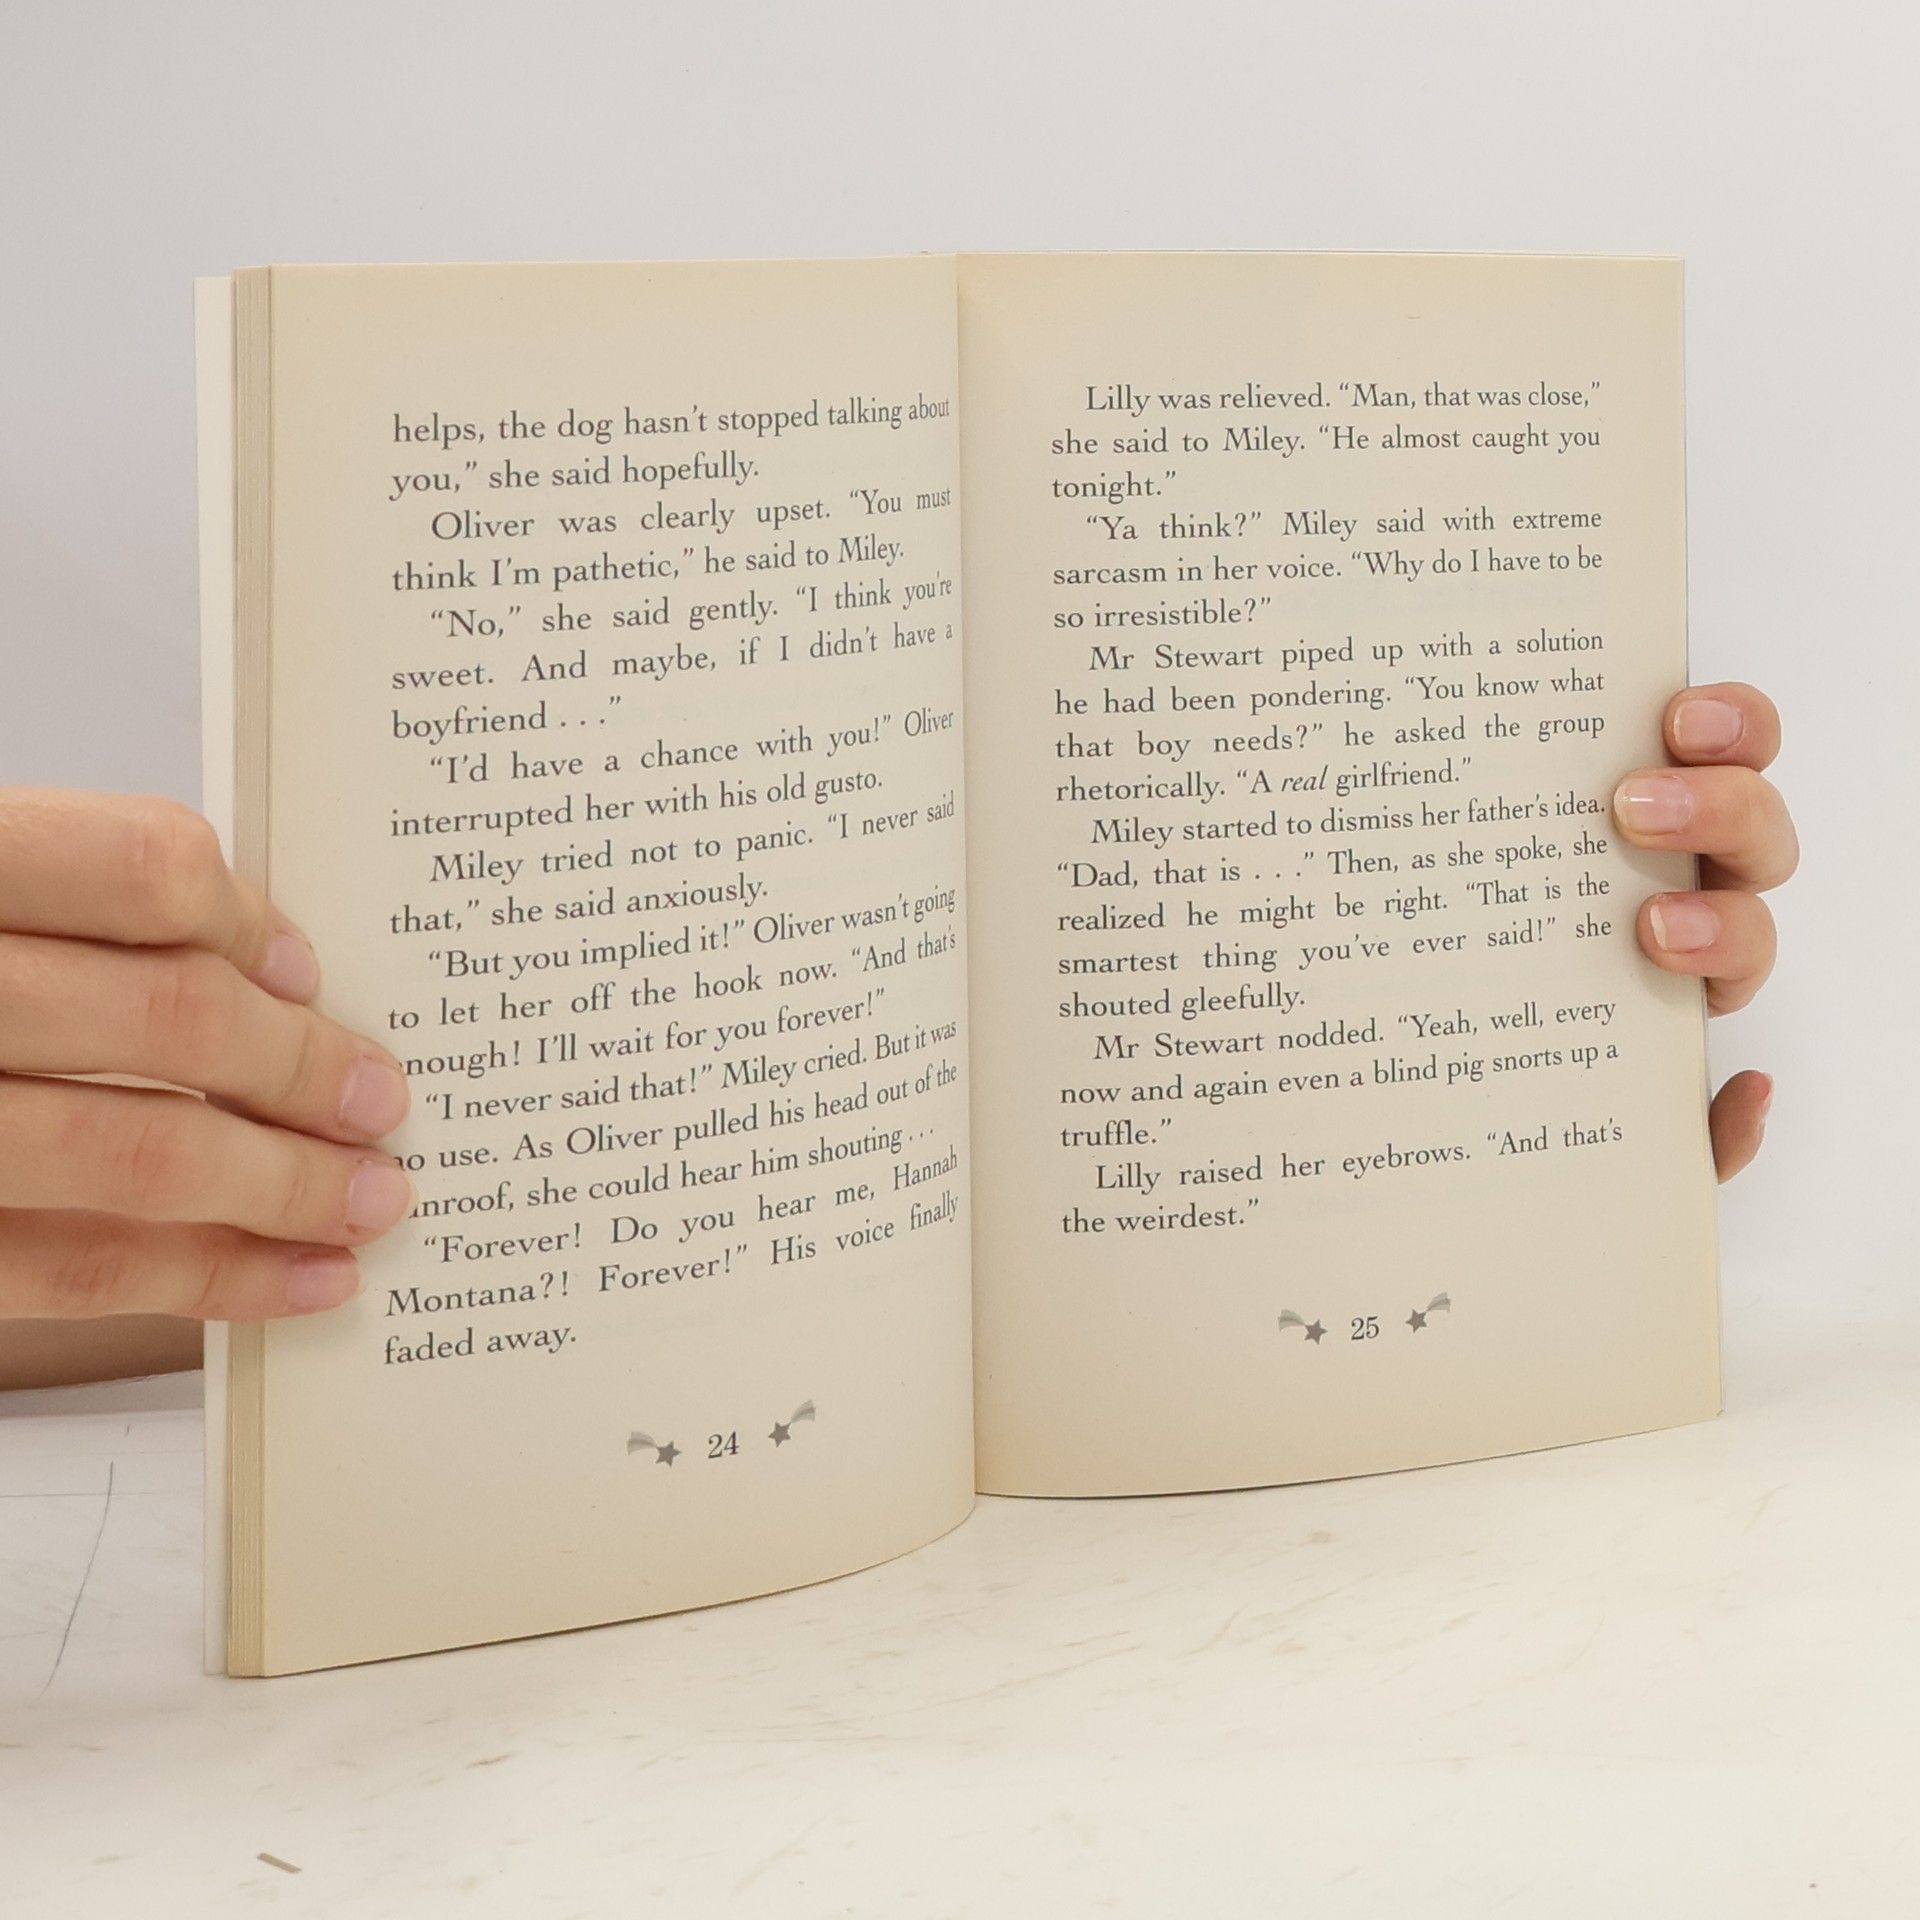 helps, the dog hasn't stopped talking about
you,” she said hopefully.
Oliver was clearly upset. “You must
think I'm pathetic,” he said to Miley.
“No,” she said gently. “I think you're
sweet. And maybe, if I didn't have a
boyfriend . . .”
“I'd have a chance with you!” Oliver
interrupted her with his old gusto.
Miley tried not to panic. “I never said
that,” she said anxiously.
“But you implied it!” Oliver wasn't going
to let her off the hook now. “And that's
nough! I'll wait for you forever!”
“I never said that!” Miley cried. But it was
no use. As Oliver pulled his head out of the
nroof, she could hear him shouting . . .
“Forever! Do you hear me, Hannah
Montana?! Forever!” His voice finally
faded away.
24
Lilly was relieved. “Man, that was close,”
she said to Miley. “He almost caught you
tonight.”
“Ya think?” Miley said with extreme
sarcasm in her voice. “Why do I have to be
so irresistible?”
Mr Stewart piped up with a solution
he had been pondering. “You know what
that boy needs?” he asked the group
rhetorically. “A real girlfriend.”
Miley started to dismiss her father's idea.
“Dad, that is . . .” Then, as she spoke, she
realized he might be right. “That is the
smartest thing you've ever said!” she
shouted gleefully.
Mr Stewart nodded. “Yeah, well, every
now and again even a blind pig snorts up a
truffle.”
Lilly raised her eyebrows. “And that's
the weirdest.”
25